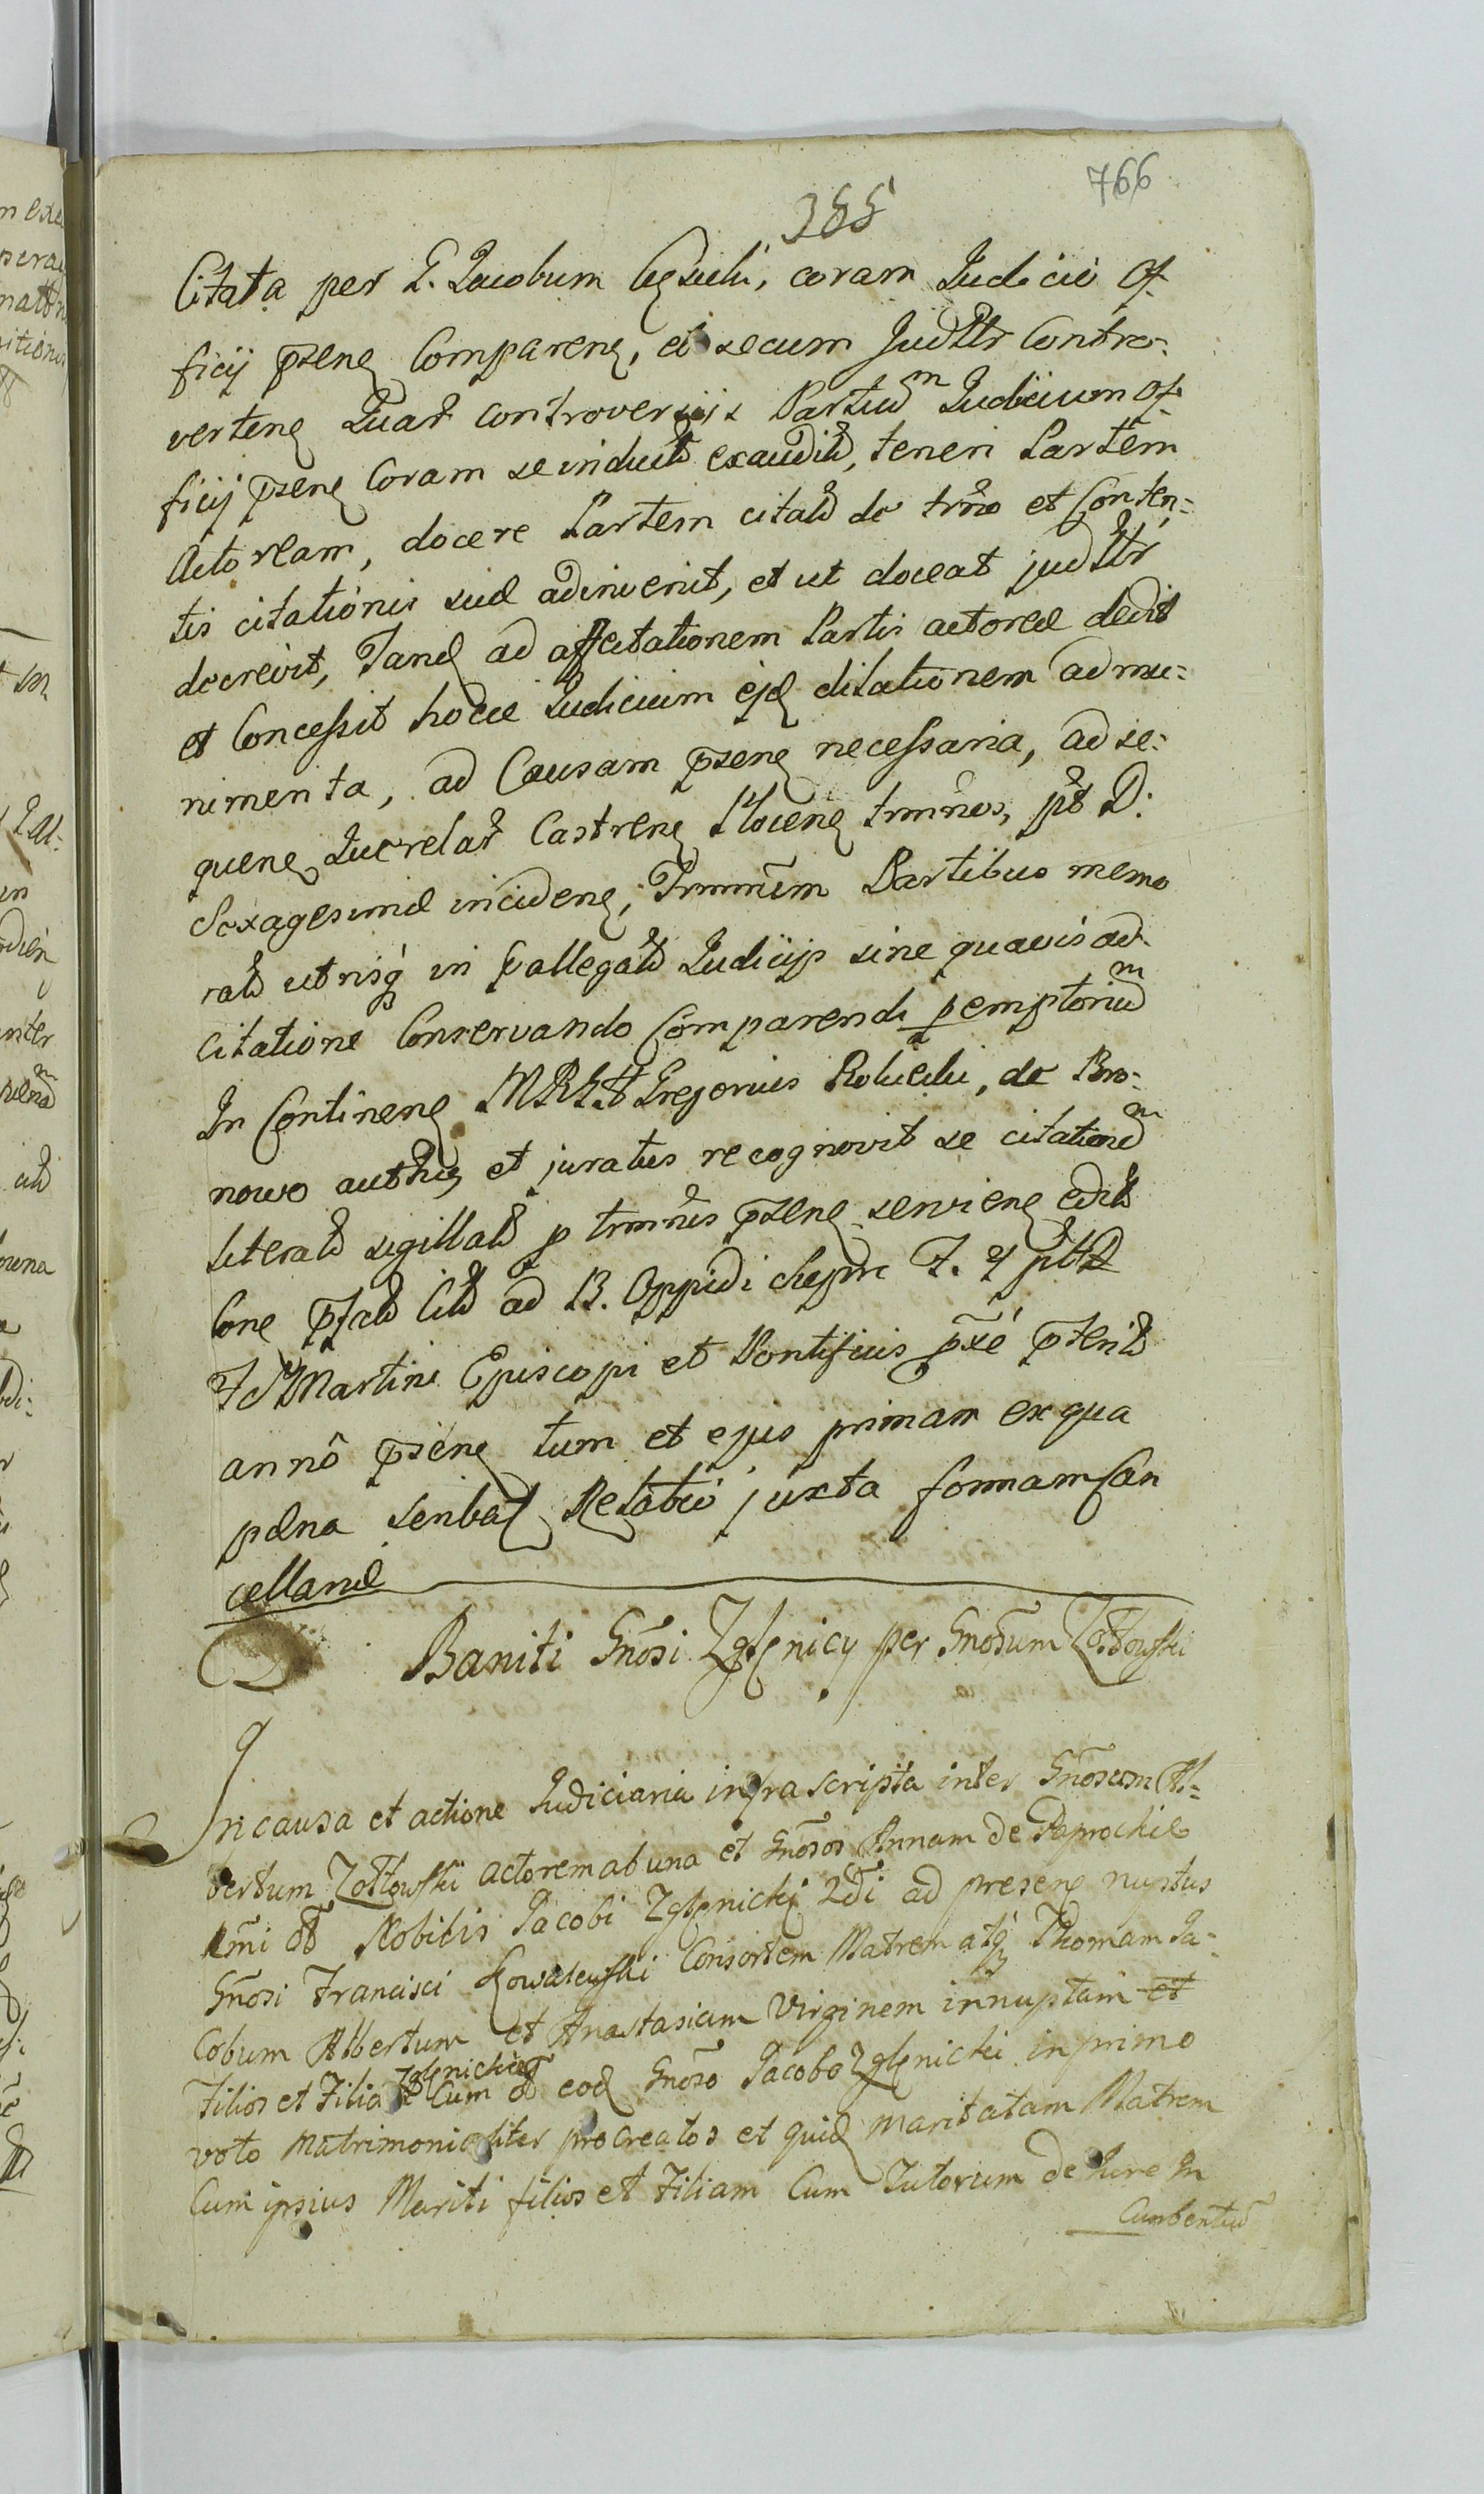 766
355
Citata per G. Jacobum coram Judicio Of-
ficij psenę Comparenę, et secum Judltr Contro-
vertenę Quar controversiis Partium Judicium Of-
ficij psenę Coram se induct exaudit, teneri Partem
Actoream, docere Partem citat de trno et Conten-
tis citationis suæ adinvenit, et ut doceat judltr
decrevit, Tand ad affectationem Partis actoreæ dedit
et Concessit hocce Judicium ejd dilationem ad mu-
nimenta, ad Causam psenę necessaria, ad se-
quenę Querelar Castrenę Plocenę trmnos, pt D:
Sexagesimæ incidenę, Trmnum Partibus memo
rat utrisq in pallegat Judicijs sine quavis ad-
citatione Conservando Comparendi pemptorium
In Continenę Gregorius de Bro-
nowo authę et juratus recognovit se citationem
literat sigillat p trmnis psenę servienę edit
Cone pfat Cit ad B. Oppidi
F S Martini Episcopi et Pontificis pxe pterit
anno psenę tum et ejus primam ex qua
pdna Relatio juxta formam Can
cellariæ
Baniti Gnosi Zglenicy per Gnosum Zołtowski
In causa et actione Judiciaria infrascripta inter Gnosum Al-
bertum Zołtowski actorem ab una et Gnosos Annam de Paprockie
1mi Nobilis Jacobi Zglenicki 2di ad presenę nuptus
Gnosi Francisci Kowalewski Consortem Matrem atq Thomam Ja-
Cobum Albertum et Anastasiam Virginem innuptam et
Zglenickie
Filios et Filia Cum eod Gnoso Jacobo Zglenicki in primo
voto Matrimonialiter procreatos et quid maritatam Matrem
Cum ipsius Mariti filios et Filiam Cum Tutorum de Jure In
Cumbentium